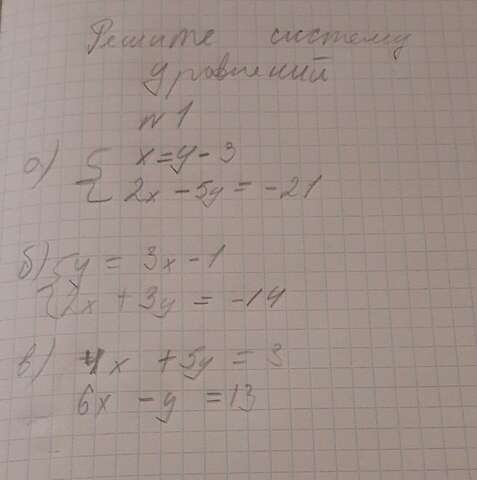 Решите систему
уравнений
n 1
а) { x = y - 3
2x - 5y = -21
б) { y = 3x - 1
2x + 3y = -14
в) 4x + 5y = 3
6x - y = 13